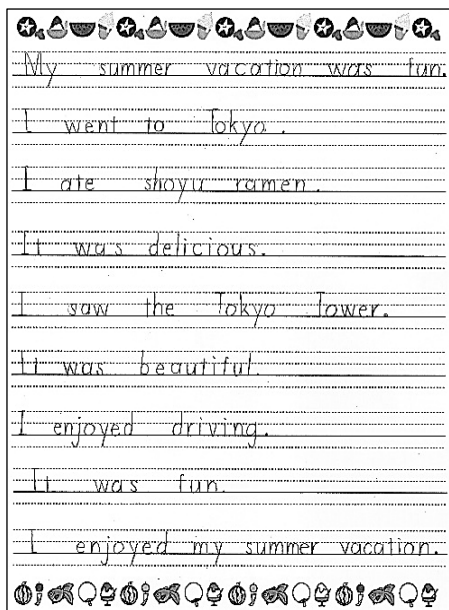 My summer vacation was fun.
I went to Tokyo.
I ate shoyu ramen.
It was delicious.
I saw the Tokyo Tower.
It was beautiful.
I enjoyed driving.
It was fun.
I enjoyed my summer vacation.